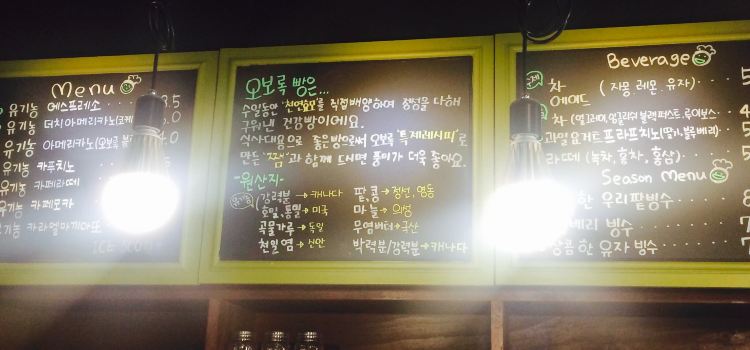 Menu
유기농 에스프레소 3.5
유기농 더치아메리카노 4.0
유기농 아메리카노(오보록
유기농 카푸치노
유기농 카페라떼
유기농 카페모카
카라멜마끼아또
오보록 빵은...
수일동안 "천연효모"를 직접배양하여 정성을 다해
구워낸 건강빵이에요.
식사대용으로 좋은빵으로써 오보록 "특제레시피"로
만든 "잼"과 함께 드시면 풍미가 더욱 좋아요.
-원산지-
유기농
강력분→캐나다
호밀, 통밀→미국
곡물가루→독일
천일염→신안
팥, 콩→정선, 영동
마늘→의성
무염버터→국산
박력분/강력분→캐나다
Beverage
차 (자몽, 레몬, 유자)
에이드
차 (얼그레이, 잉글리쉬 블랙퍼스트, 루이보스
과일요거트 프라프치노(딸기,블루베리)
라떼 (녹차, 홍차, 홍삼)
Season Menu
한 우리 팥빙수
베리 빙수
상콤한 유자 빙수